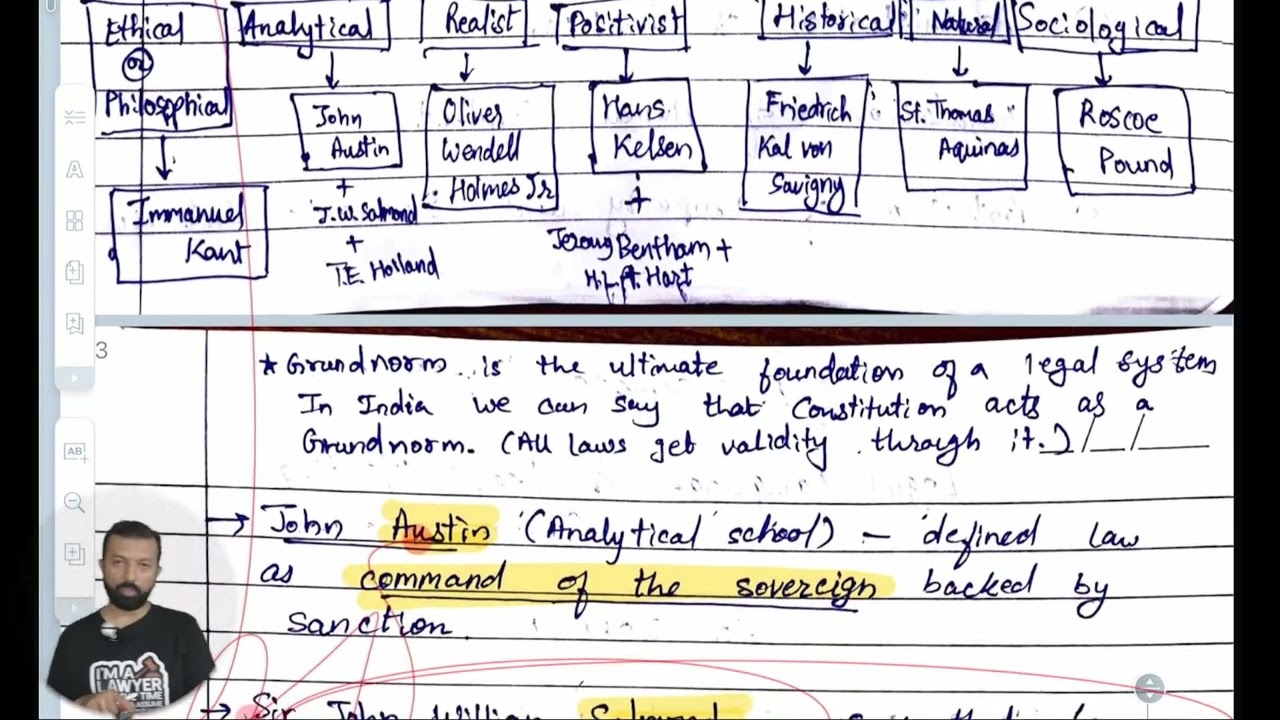 Ethical Analytical Realist Positivist Historical Natural Sociological
or
Philosophical
John Austin
Oliver Wendell Holmes Jr
Hans Kelsen
Friedrich Kal von Savigny
St. Thomas Aquinas
Roscoe Pound
Immanuel Kant
+
J.W. Salmond
+
T.E. Holland
+
Bentham +
H.L.A. Hart
3
* Grundnorm is the ultimate foundation of a legal system
In India we can say that Constitution acts as a
Grundnorm. (All laws get validity through it.)
→ John Austin (Analytical school) - defined law
as command of the sovereign backed by
sanction.
→ Sir John William Salmond
I'M A
LAWYER
TIME
ASSUME